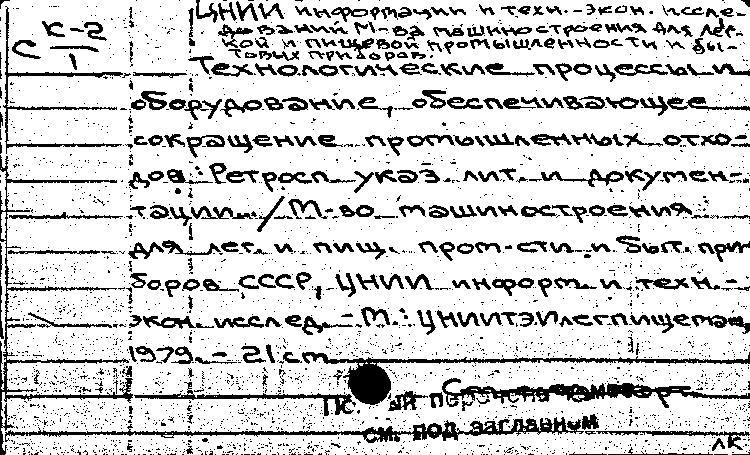 ЦНИИ информации и техн.-экон. иссле-
дований М-ва машиностроения для лег-
кой и пищевой промышленности и бы-
товых приборов.
С К-2
1
Технологические процессы и
оборудование, обеспечивающее
сокращение промышленных отхо-
дов: Ретросп указ. лит. и докумен-
тации.. / М-во машиностроения
для лег. и пищ. пром-сти и быт. при
боров СССР, ЦНИИ информ. и техн.-
экон. исслед. - М.: ЦНИИТЭИлегпищемаш,
1979. - 21 см
см. под заглавном
ЛК